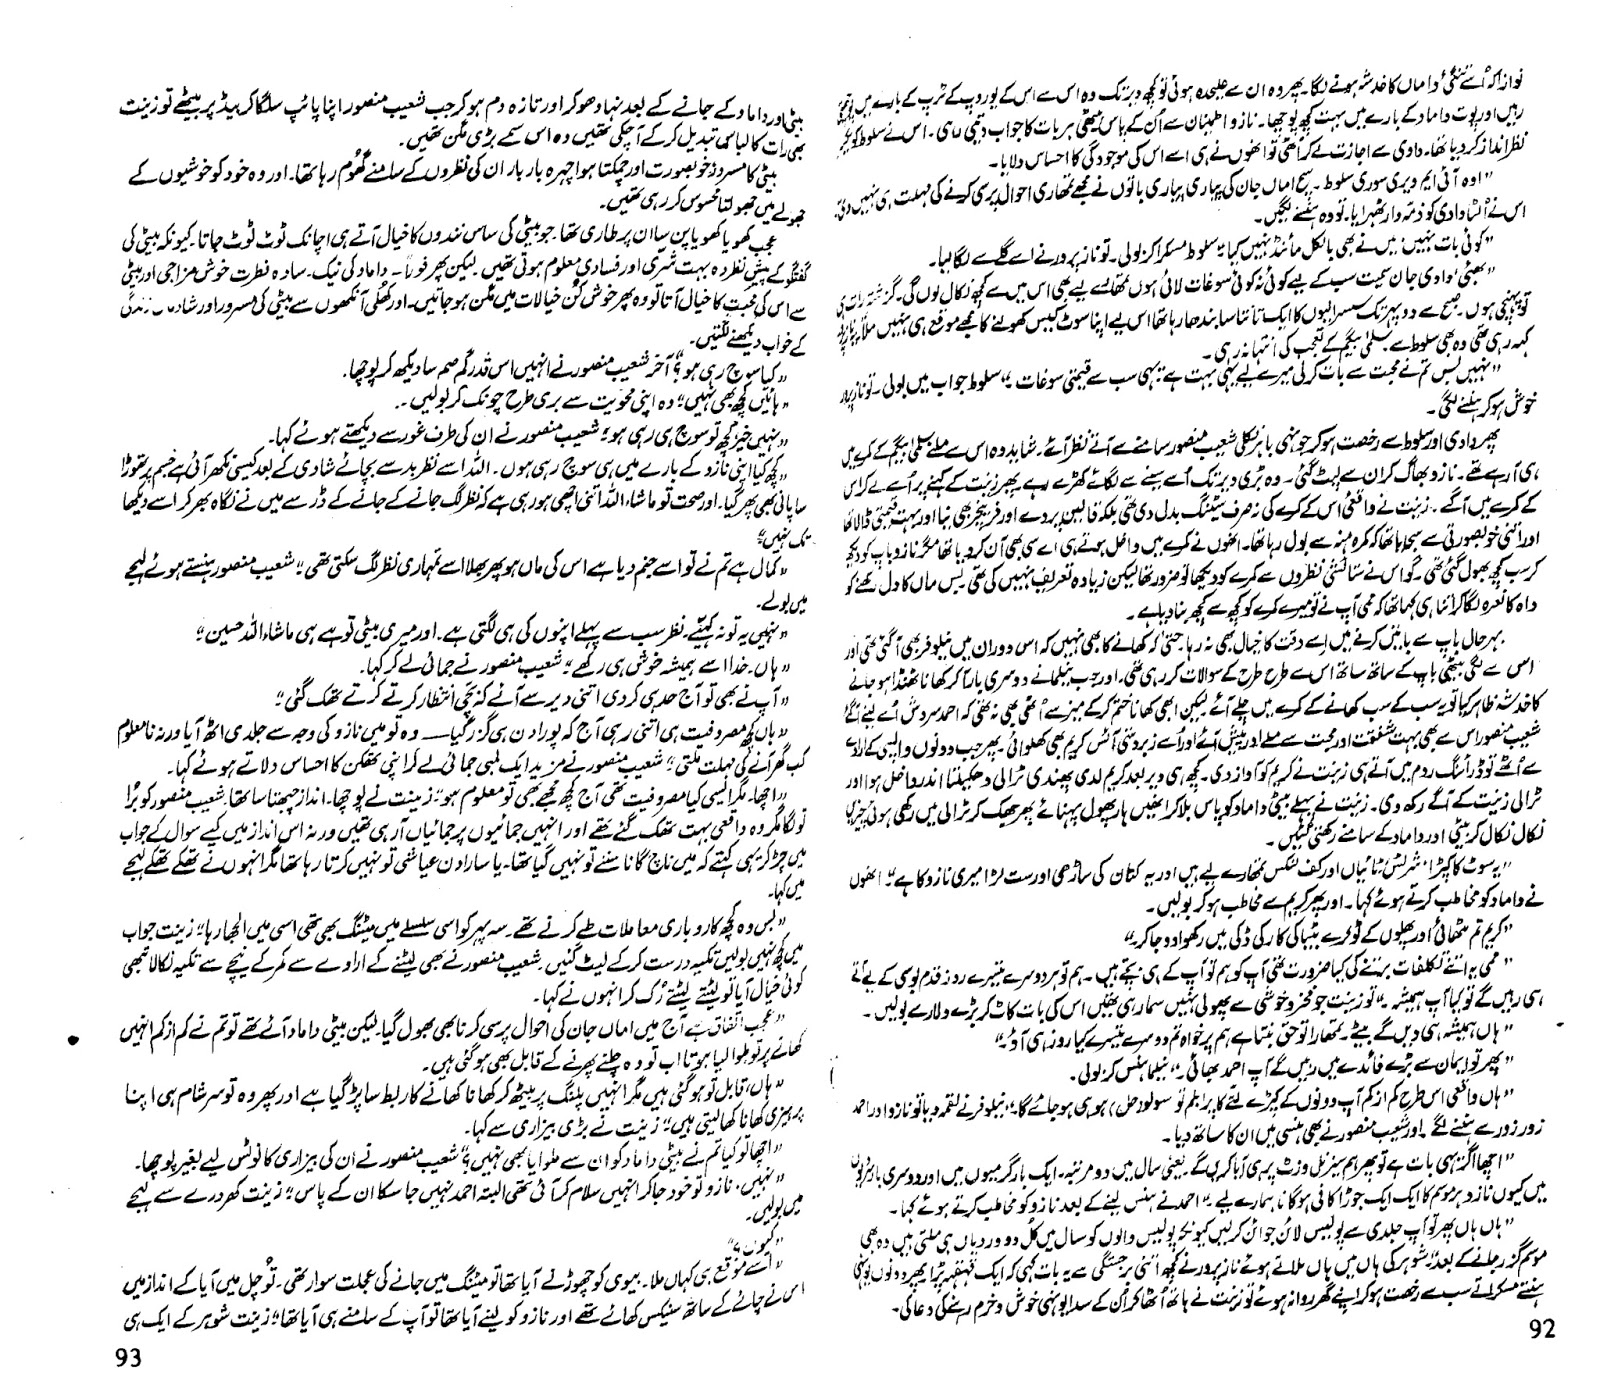 نوازا کہ اُسے تنگیٔ داماں کا خدشہ ہونے لگا۔ پھر وہ ان سے علیحدہ ہوئی تو کچھ دیر تک وہ اس سے اس کے یورپ کے ٹرپ کے بارے میں
رہیں اور پوت داماد کے بارے میں بہت کچھ پوچھا۔ نازو اطمینان سے اُن کے پاس بیٹھی ہر بات کا جواب دیتی رہی۔ اس نے سلوط کو یکسر
نظر انداز کر دیا تھا۔ دادی سے اجازت لے کر اٹھی تو انھوں نے ہی اسے اس کی موجودگی کا احساس دلایا۔
"اوہ آئی ایم ویری سوری سلوط۔ سچ اماں جان کی پیاری پیاری باتوں نے مجھے تمھاری احوال پرسی کرنے کی مہلت ہی نہیں دی"
اس نے اُلٹا دادی کو ذمہ دار ٹھہرایا۔ تو وہ ہنسنے لگیں۔
"کوئی بات نہیں، میں نے بھی بالکل مائنڈ نہیں کیا" سلوط مسکرا کر بولی۔ تو ناز پرور نے اسے گلے سے لگا لیا۔
"بھئی دادی جان سمیت سب کے لیے کوئی نہ کوئی سوغات لائی ہوں تمھارے لیے بھی اس میں سے کچھ نکال لوں گی۔ گزشتہ رات ہی
تو پہنچی ہوں۔ صبح سے دوپہر تک سسرالیوں کا ایک تانتا سا بندھا رہا تھا اس لیے اپنا سوٹ کیس کھولنے کا مجھے موقع ہی نہیں ملا"
کہہ رہی تھی وہ بھی سلوط سے سلمیٰ بیگم کے تعجب کی انتہا نہ رہی۔
"نہیں بس تم نے محبت سے بات کر لی میرے لیے یہی بہت ہے یہی سب سے قیمتی سوغات" سلوط جواب میں بولی۔ تو ناز پرور
خوش ہو کر ہنسنے لگی۔
پھر دادی اور سلوط سے رخصت ہو کر جونہی باہر نکلی شعیب منصور سامنے سے آتے نظر آئے۔ شاید وہ اس سے ملنے سلمیٰ بیگم کے کمرے میں
ہی آ رہے تھے۔ نازو بھاگ کر ان سے لپٹ گئی۔ وہ بڑی دیر تک اُسے سینے سے لگائے کھڑے رہے پھر زینت کے کہنے پر اُسے لے کر اس
کے کمرے میں آ گئے۔ زینت نے واقعی اس کے کمرے کی نہ صرف سیٹنگ بدل دی تھی بلکہ قالین پردے اور فرنیچر بھی نیا اور بہت قیمتی ڈالا تھا
اور اتنی خوبصورتی سے سجایا تھا کہ کمرہ منہ سے بول رہا تھا۔ انھوں نے کمرے میں داخل ہوتے ہی اے سی بھی آن کر دیا تھا مگر نازو باپ کو دیکھ
کر سب کچھ بھول گئی تھی۔ گو اس نے ستائشی نظروں سے کمرے کو دیکھا تو ضرور تھا لیکن زیادہ تعریف نہیں کی تھی بس ماں کا دل رکھنے کو
واہ کا نعرہ لگا کر اتنا ہی کہا تھا کہ ممی آپ نے تو میرے کمرے کو کچھ سے کچھ بنا دیا ہے۔
بہرحال باپ سے باتیں کرنے میں اسے وقت کا خیال بھی نہ رہا۔ حتیٰ کہ کھانے کا بھی نہیں کہ اس دوران میں نیلوفر بھی آ گئی تھی اور
اس سے لگی بیٹھی باپ کے ساتھ ساتھ اس سے طرح طرح کے سوالات کر رہی تھی۔ اور جب نیلما نے دوسری بار آ کر کھانا ٹھنڈا ہو جانے
کا خدشہ ظاہر کیا تو یہ سب کے سب کھانے کے کمرے میں چلے آئے لیکن ابھی کھانا ختم کر کے میز سے اُٹھی بھی نہ تھی کہ احمد سروش اُسے لینے آ گئے
شعیب منصور اس سے بھی بہت شفقت اور محبت سے ملے اور پیش آئے اور اُسے زبردستی آئس کریم بھی کھلوائی۔ پھر جب دونوں واپسی کے ارادے
سے اُٹھے تو ڈرائنگ روم میں آتے ہی زینت نے کریم کو آواز دی۔ کچھ ہی دیر بعد کریم لدی پھندی ٹرالی دھکیلتا اندر داخل ہوا اور
ٹرالی زینت کے آگے رکھ دی۔ زینت نے پہلے بیٹی داماد کو پاس بلا کر انھیں ہار پھول پہنائے پھر جھک کر ٹرالی میں رکھی ہوئی چیزیں
نکال نکال کر بیٹی اور داماد کے سامنے رکھتی گئیں۔
"یہ سوٹ کا کپڑا، شرٹس، ٹائیاں اور کف لنکس تمھارے لیے ہیں اور یہ کتان کی ساڑھی اور ست لڑا میری نازو کا ہے" انھوں
نے داماد کو مخاطب کرتے ہوئے کہا۔ اور پھر کریم سے مخاطب ہو کر بولیں۔
"کریم تم مٹھائی اور پھلوں کے ٹوکرے بیٹا کی کار کی ڈکی میں رکھوا دو جا کر"
"ممی یہ اتنے تکلفات برتنے کی کیا ضرورت تھی آپ کو ہم تو آپ کے ہی بچے ہیں۔ ہم تو ہر دوسرے تیسرے روز قدم بوسی کے لیے آتے
ہی رہیں گے تو کیا آپ ہمیشہ۔" تو زینت جو فخر و خوشی سے پھولی نہیں سما رہی تھیں اس کی بات کاٹ کر بڑے دلار سے بولیں۔
"ہاں ہمیشہ ہی دیں گے بیٹے۔ تمھارا تو حق بنتا ہے ہم پر خواہ تم دوسرے تیسرے کیا روز ہی آؤ۔"
"پھر تو ایمان سے بڑے فائدے میں رہیں گے آپ احمد بھائی۔" نیلما ہنس کر بولی۔
"ہاں واقعی اس طرح کم از کم آپ دونوں کے کپڑے لتے کا پرابلم تو سولو (حل) ہو ہی جائے گا" نیلوفر نے لقمہ دیا تو نازو اور احمد
زور زور سے ہنسنے لگے اور شعیب منصور نے بھی ہنسی میں ان کا ساتھ دیا۔
"اچھا اگر یہی بات ہے تو پھر ہم سیزنل وزٹ پر ہی آیا کریں گے۔ یعنی سال میں دو مرتبہ۔ ایک بار گرمیوں میں اور دوسری بار سردیوں
میں کیوں نازو ہر موسم کا ایک ایک جوڑا کافی ہو گا نا ہمارے لیے" احمد نے ہنس لینے کے بعد نازو کو مخاطب کرتے ہوئے کہا۔
"ہاں ہاں پھر تو آپ جلدی سے پولیس لائن جوائن کر لیں کیونکہ پولیس والوں کو سال میں کل دو وردیاں ہی ملتی ہیں وہ بھی
موسم گزر جانے کے بعد" شوہر کی ہاں میں ہاں ملاتے ہوئے ناز پرور نے کچھ اتنی برجستگی سے یہ بات کہی کہ ایک قہقہہ پڑا پھر دونوں یونہی
ہنستے مسکراتے سب سے رخصت ہو کر اپنے گھر روانہ ہوئے تو زینت نے ہاتھ اُٹھا کر اُن کے سدا یونہی خوش و خرم رہنے کی دعا کی۔
92
بیٹی اور داماد کے جانے کے بعد نہا دھو کر اور تازہ دم ہو کر جب شعیب منصور اپنا پائپ سلگا کر بیڈ پر بیٹھے تو زینت
بھی رات کا لباس تبدیل کر کے آ چکی تھیں وہ اس سمے بڑی مگن تھیں۔
بیٹی کا مسرور خوبصورت اور چمکتا ہوا چہرہ بار بار ان کی نظروں کے سامنے گھوم رہا تھا۔ اور وہ خود کو خوشیوں کے
جھولے میں جھولتا محسوس کر رہی تھیں۔
عجب کھویا کھویا پن سا ان پر طاری تھا۔ جو بیٹی کی ساس نندوں کا خیال آتے ہی اچانک ٹوٹ ٹوٹ جاتا۔ کیونکہ بیٹی کی
گفتگو کے پیش نظر وہ بہت شری اور فسادی معلوم ہوتی تھیں لیکن پھر فوراً۔ داماد کی نیک۔ سادہ فطرت خوش مزاجی اور بیٹی
سے اس کی محبت کا خیال آتا تو وہ پھر خوش کن خیالات میں مگن ہو جاتیں۔ اور کھلی آنکھوں سے بیٹی کی مسرور اور شاد زندگی
کے خواب دیکھنے لگتیں۔
"کیا سوچ رہی ہو؟" آخر شعیب منصور نے انہیں اس قدر گم صم سا دیکھ کر پوچھا۔
"ہائیں کچھ بھی نہیں" وہ اپنی محویت سے بری طرح چونک کر بولیں۔
"نہیں خیر کچھ تو سوچ ہی رہی ہو" شعیب منصور نے ان کی طرف غور سے دیکھتے ہوئے کہا۔
"کچھ کیا اپنی نازو کے بارے میں ہی سوچ رہی ہوں۔ اللہ اسے نظر بد سے بچائے شادی کے بعد کیسی نکھر آئی ہے جسم پر تھوڑا
سا پانی بھی پھر گیا۔ اور صحت تو ماشاء اللہ اتنی اچھی ہو رہی ہے کہ نظر لگ جانے کے ڈر سے میں نے نگاہ بھر کر اسے دیکھا
تک نہیں"
"کمال ہے تم نے تو اسے جنم دیا ہے اس کی ماں ہو پھر بھلا اسے تمہاری نظر لگ سکتی تھی" شعیب منصور ہنستے ہوئے لہجے
میں بولے۔
"نہیں یہ تو نہ کہئے۔ نظر سب سے پہلے اپنوں کی ہی لگتی ہے۔ اور میری بیٹی تو ہے ہی ماشاء اللہ حسین"
"ہاں۔ خدا اسے ہمیشہ خوش ہی رکھے" شعیب منصور نے جمائی لے کر کہا۔
"آپ نے بھی تو آج حد ہی کر دی اتنی دیر سے آئے کہ بچی انتظار کرتے کرتے تھک گئی"
"ہاں کچھ مصروفیت ہی اتنی رہی آج کہ پورا دن ہی گزر گیا—— وہ تو میں نازو کی وجہ سے جلدی اٹھ آیا ورنہ نا معلوم
کب گھر آنے کی مہلت ملتی" شعیب منصور نے مزید ایک لمبی جمائی لے کر اپنی تھکن کا احساس دلاتے ہوئے کہا۔
"اچھا۔ مگر ایسی کیا مصروفیت تھی آج کچھ مجھے بھی تو معلوم ہو" زینت نے پوچھا۔ انداز چبھتا سا تھا۔ شعیب منصور کو برا
تو لگا مگر وہ واقعی بہت تھک گئے تھے اور انہیں جمائیوں پر جمائیاں آ رہی تھیں ورنہ اس انداز میں کیے سوال کے جواب
میں چڑ کر یہی کہتے کہ میں ناچ گانا سننے تو نہیں گیا تھا۔ یا سارا دن عیاشی تو نہیں کرتا رہا تھا مگر انہوں نے تھکے تھکے لہجے
میں کہا۔
"بس وہ کچھ کاروباری معاملات طے کرنے تھے۔ سہ پہر کو اسی سلسلے میں میٹنگ بھی تھی اسی میں الجھا رہا" زینت جواب
میں کچھ نہیں بولیں تکیہ درست کر کے لیٹ گئیں۔ شعیب منصور نے بھی لیٹنے کے ارادے سے کمر کے نیچے سے تکیہ نکالا تبھی
کوئی خیال آیا تو لیٹتے لیٹتے رُک کر انہوں نے کہا۔
"عجب اتفاق ہے آج میں اماں جان کی احوال پرسی کرنا بھی بھول گیا۔ لیکن بیٹی داماد آئے تھے تو تم نے کم از کم انہیں
کھانے پر تو بلوا لیا ہوتا اب تو وہ چلنے پھرنے کے قابل بھی ہو گئی ہیں۔
"ہاں، قابل تو ہو گئی ہیں مگر انہیں پلنگ پر بیٹھ کر کھانا کھانے کا ربط سا پڑ گیا ہے اور پھر وہ تو سر شام ہی اپنا
پرہیزی کھانا کھا لیتی ہیں" زینت نے بڑی بیزاری سے کہا۔
"اچھا تو کیا تم نے بیٹی داماد کو ان سے ملوایا بھی نہیں؟" شعیب منصور نے ان کی بیزاری کا نوٹس لیے بغیر پوچھا۔
"نہیں، نازو تو خود جا کر انہیں سلام کر آئی تھی البتہ احمد نہیں جا سکا ان کے پاس" زینت کھردرے سے لہجے
میں بولیں۔
"کیوں؟"
"اسے موقع ہی کہاں ملا۔ بیوی کو چھوڑنے آیا تھا تو میٹنگ میں جانے کی عجلت سوار تھی۔ تو چل میں آیا کے انداز میں
اس نے چائے کے ساتھ سنیکس کھائے تھے اور نازو کو لینے آیا تھا تو آپ کے سامنے ہی آیا تھا" زینت شوہر کے ایک ہی
93